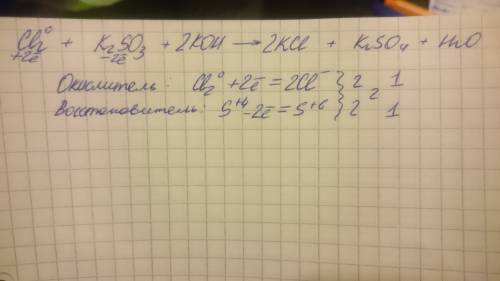 Cl₂⁰ + K₂SO₃ + 2KOH → 2KCl + K₂SO₄ + H₂O
+2ē -2ē
Окислитель: Cl₂⁰ +2ē = 2Cl⁻ } 2 2 1
Восстановитель: S⁺⁴ -2ē = S⁺⁶ } 2 1